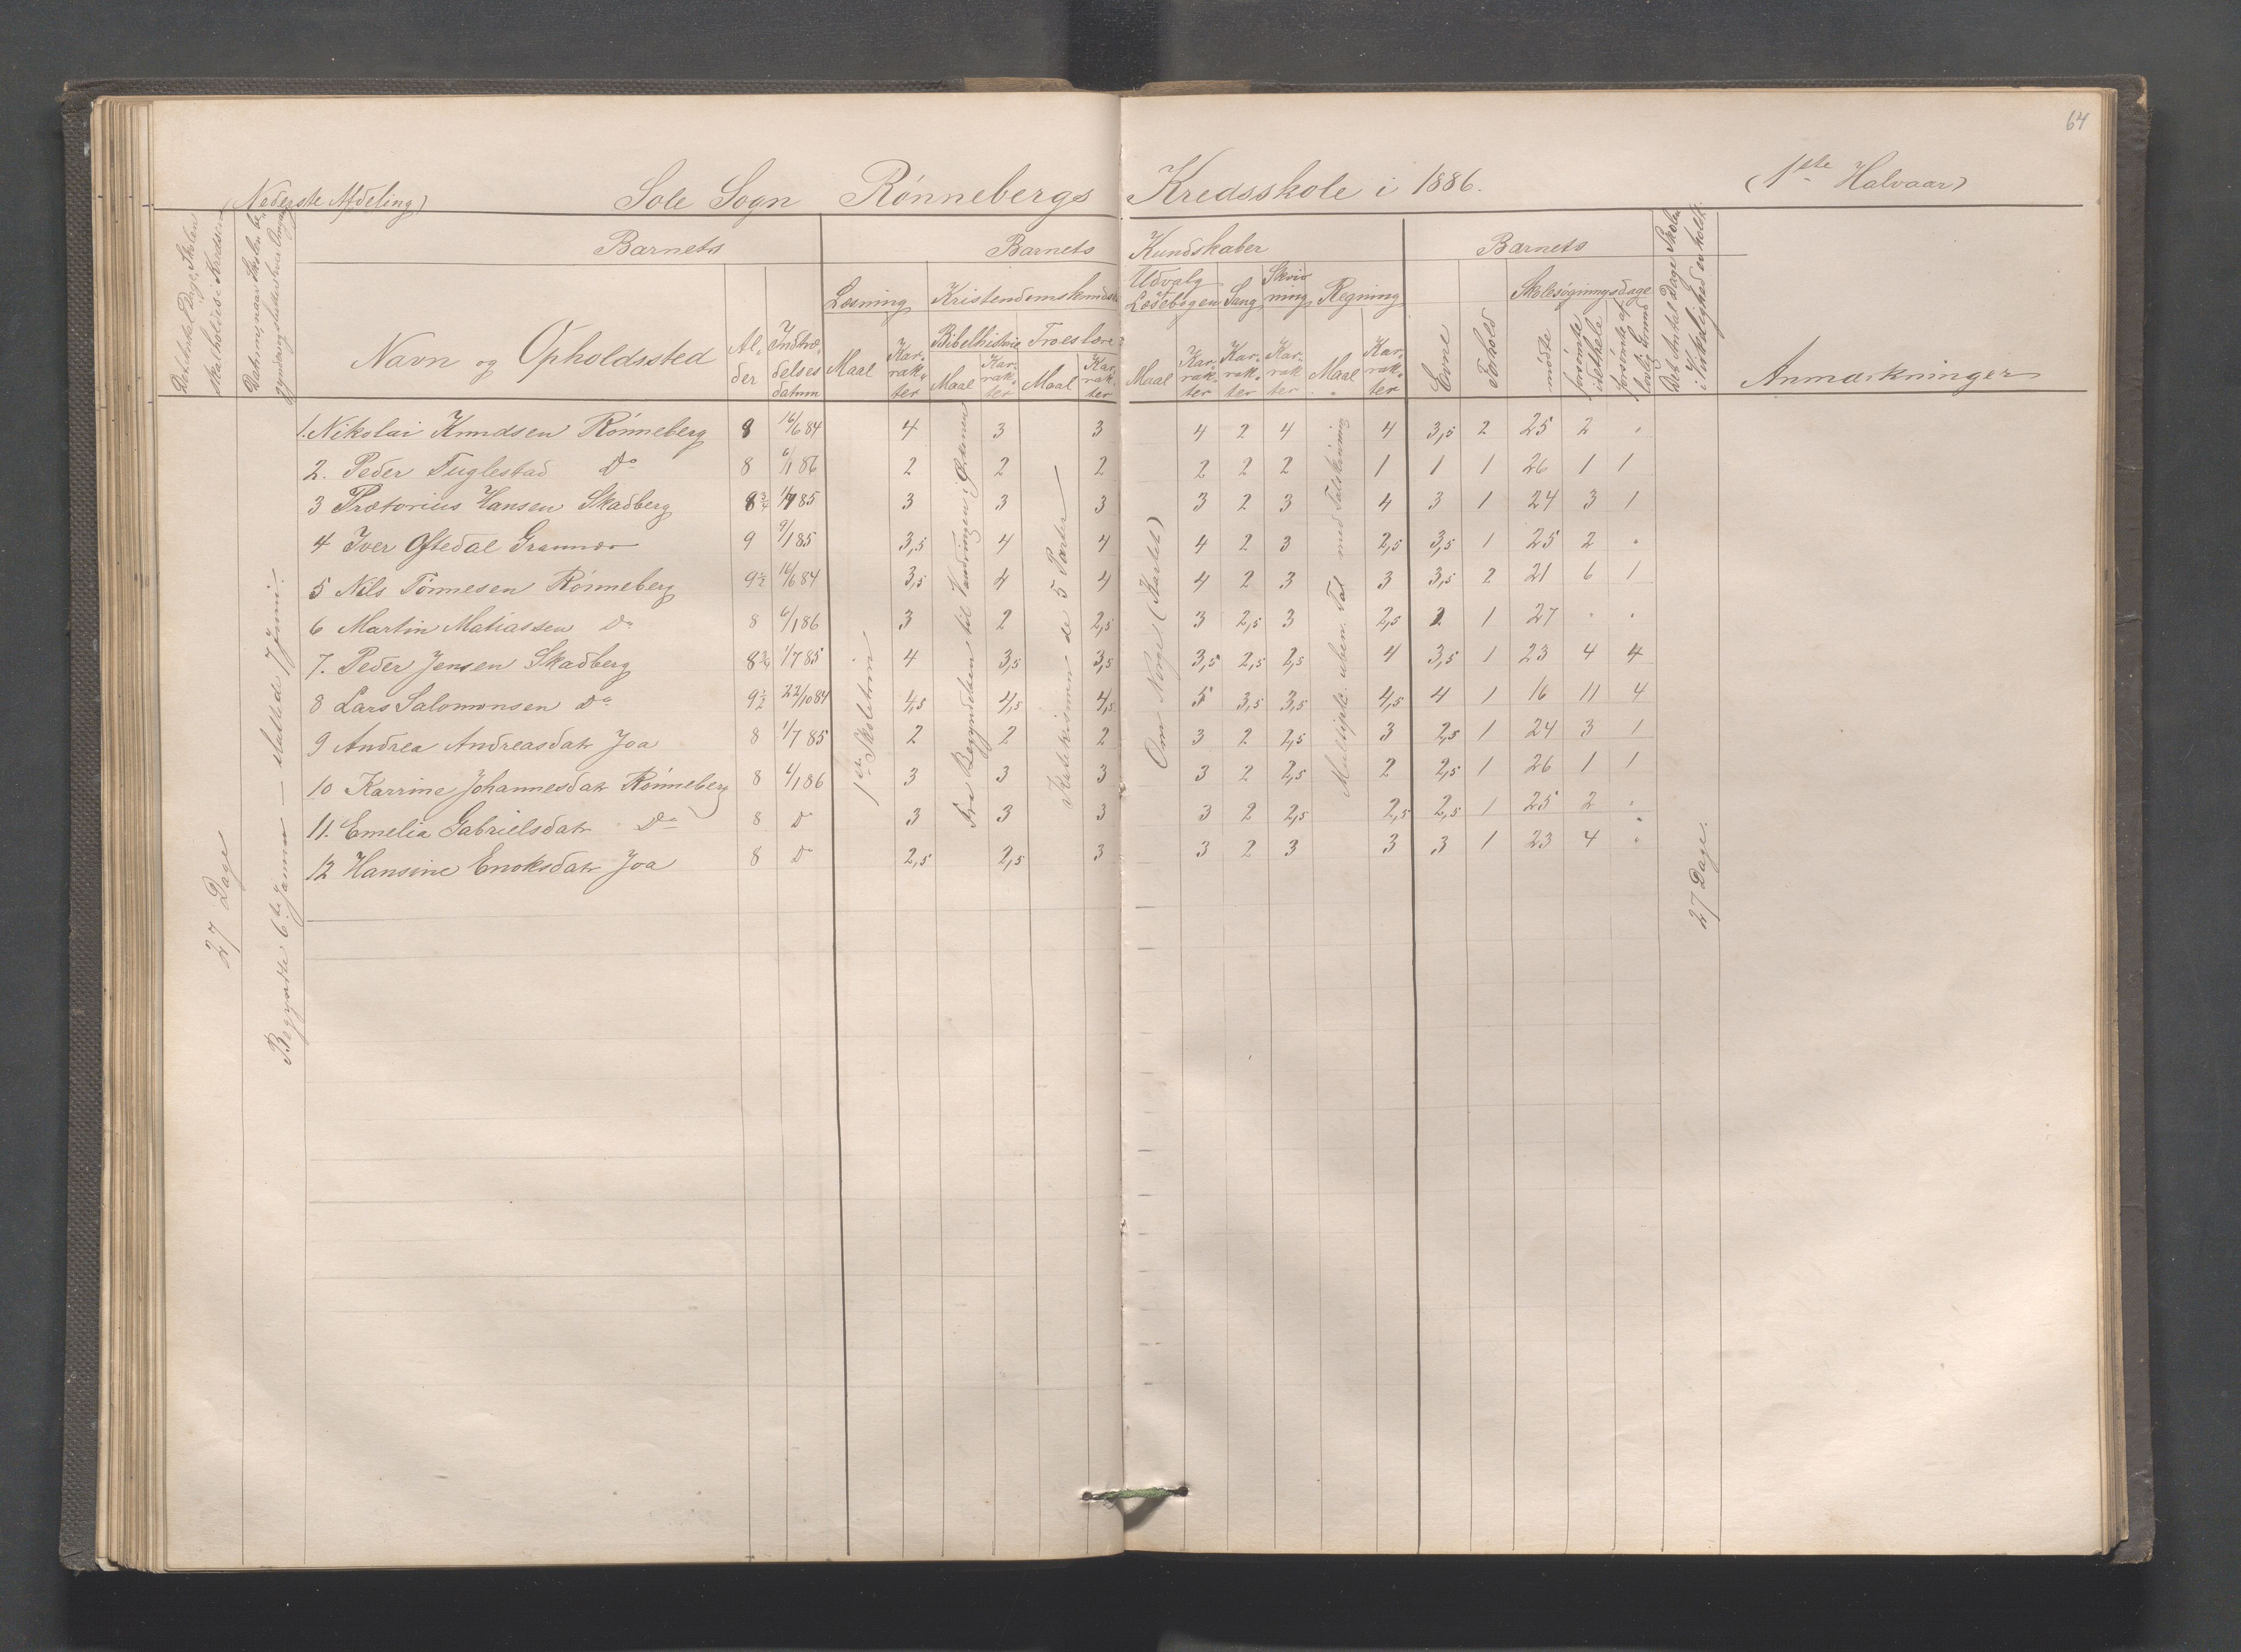 64
(Nederste Afdeling) Sole Sogn Rønnebergs Kredsskole i 1886. (1ste Halvaar)
Det Antal Dage, Skolen skal holdes i Kredsen
Datum, naar Skolen be-
Barnets
Navn og Opholdssted
Al-der
Indtræ-delses datum
Barnets Kundskaber
Læsning
Maal
Kar-rak-ter
Kristendomskundsk
Bibelhistorie
Maal
Kar-rak-ter
Troeslære
Maal
Kar-rak-ter
Udvalg af Læsebogen
Maal
Kar-rak-ter
Sang
Kar-rak-ter
Skriv-ning
Kar-rak-ter
Regning
Maal
Kar-rak-ter
Barnets
Evne
Forhold
Skolesøgningsdage
mødte
forsømte i det hele
forsømte af lovlig Grund
Det Antal Dage Skolen i Virkelighed er holdt.
Anmærkninger
1. Nikolai Knudsen Rønneberg 8 16/6 84 4 3 3 4 2 4 4 3,5 2 25 2 "
2. Peder Fuglestad Do 8 6/1 86 2 2 2 2 2 2 1 1 1 26 1 1
3 Prætorius Hansen Skadberg 8 3/4 1/7 85 3 3 3 3 2 3 4 3 1 24 3 1
4 Iver Oftedal Grannes 9 9/1 85 3,5 4 4 4 2 3 2,5 3,5 1 25 2 "
5 Nils Tønnesen Rønneberg 9 1/2 16/6 84 3,5 4 4 4 2 3 3 3,5 2 21 6 1
6 Martin Matiassen Do 8 6/1 86 3 2 2,5 3 2,5 3 2,5 2 1 27 " "
7. Peder Jensen Skadberg 8 3/4 1/7 85 4 3,5 3,5 3,5 2,5 2,5 4 3,5 1 23 4 4
8 Lars Salomonsen Do 9 1/2 22/10 84 4,5 4,5 4,5 5 3,5 3,5 4,5 4 1 16 11 4
9 Andrea Andreasdatr Joa 8 1/7 85 2 2 2 3 2 2,5 3 2,5 1 24 3 1
10 Karrine Johannesdatr Rønneberg 8 6/1 86 3 3 3 3 2 2,5 2 2,5 1 26 1 1
11. Emelia Gabrielsdatr Do 8 Do 3 3 3 3 2 2,5 2,5 2,5 1 25 2 "
12 Hansine Enoksdatr Joa 8 Do 2,5 2,5 3 3 2 3 3 3 1 23 4 "
27 Dage
Begyndte 6te Januar — sluttede 7 Juni.
1ste Skoletrin
Fra Begyndelsen til Vandringen i Ørkenen
Katekismen de 5 Parter
Om Norge (Kartet)
Multiplc. uben. Tal med Talskrivning
27 Dage.